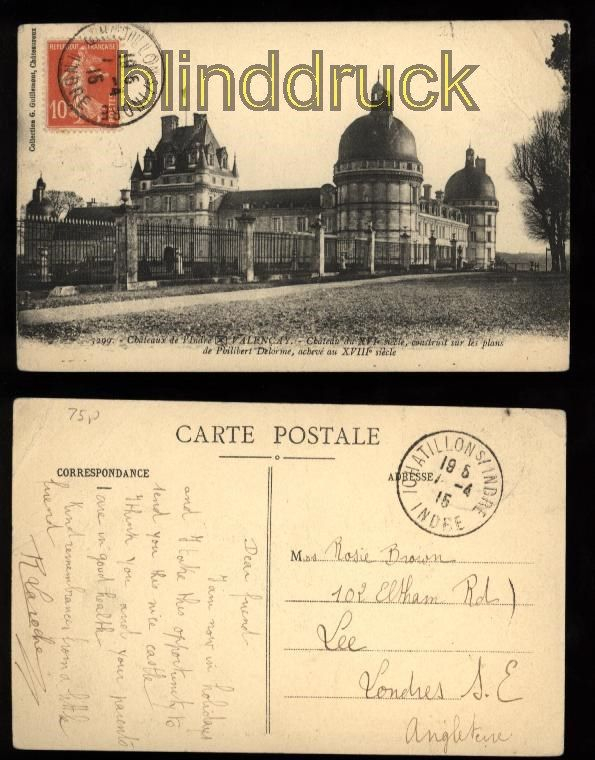 blinddruck
Collection G. Guillemont, Châteauroux
REPUBLIQUE FRANÇAISE
10
INDRE
3299. - Châteaux de l'Indre VALENÇAY. - Château du XVIe siècle, construit sur les plans
de Philibert Delorme, achevé au XVIIIe siècle
75,0
CARTE POSTALE
CORRESPONDANCE
ADRESSE
CHATILLON S/ INDRE
19 5
1-4
15
INDRE
Dear friend
I am now in holidays
and I take this opportunity to
send you this nice castle
I think you and your parents
are in good health
Kind remembrances from a little
friend
R Laroche
Mss Rosie Brown
102 Eltham Rd)
Lee
Londres S. E
Angleterre